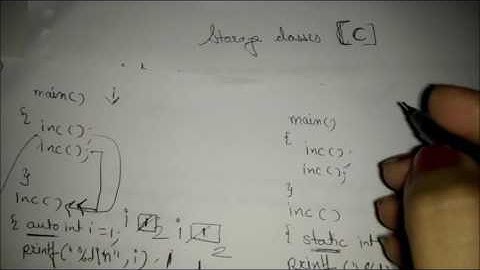 Storage classes [C]
main() i
{ inc();
inc();
}
inc()
{ auto int i=1; i 1 2 i 1 2
printf("%d\n", i); 1 1
main()
{
inc();
inc();
}
inc()
{ static int
printf("%d